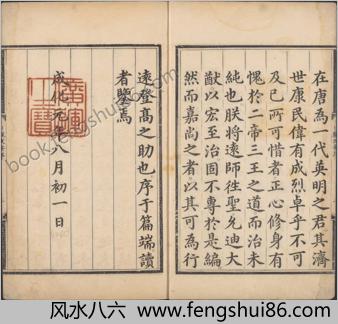 在唐為一代英明之君其濟
世康民偉有成烈卓乎不可
及已所可惜者正心修身有
愧於二帝三王之道而治未
純也朕將遠師往聖允迪大
猷以宏至治固不專於是編
然而嘉尚之者以其可為行
遠登髙之助也序于篇端讀
者鑒焉
成化元年八月初一日
廣運之寶
book.fengshui86.com
风水八六 www.fengshui86.com